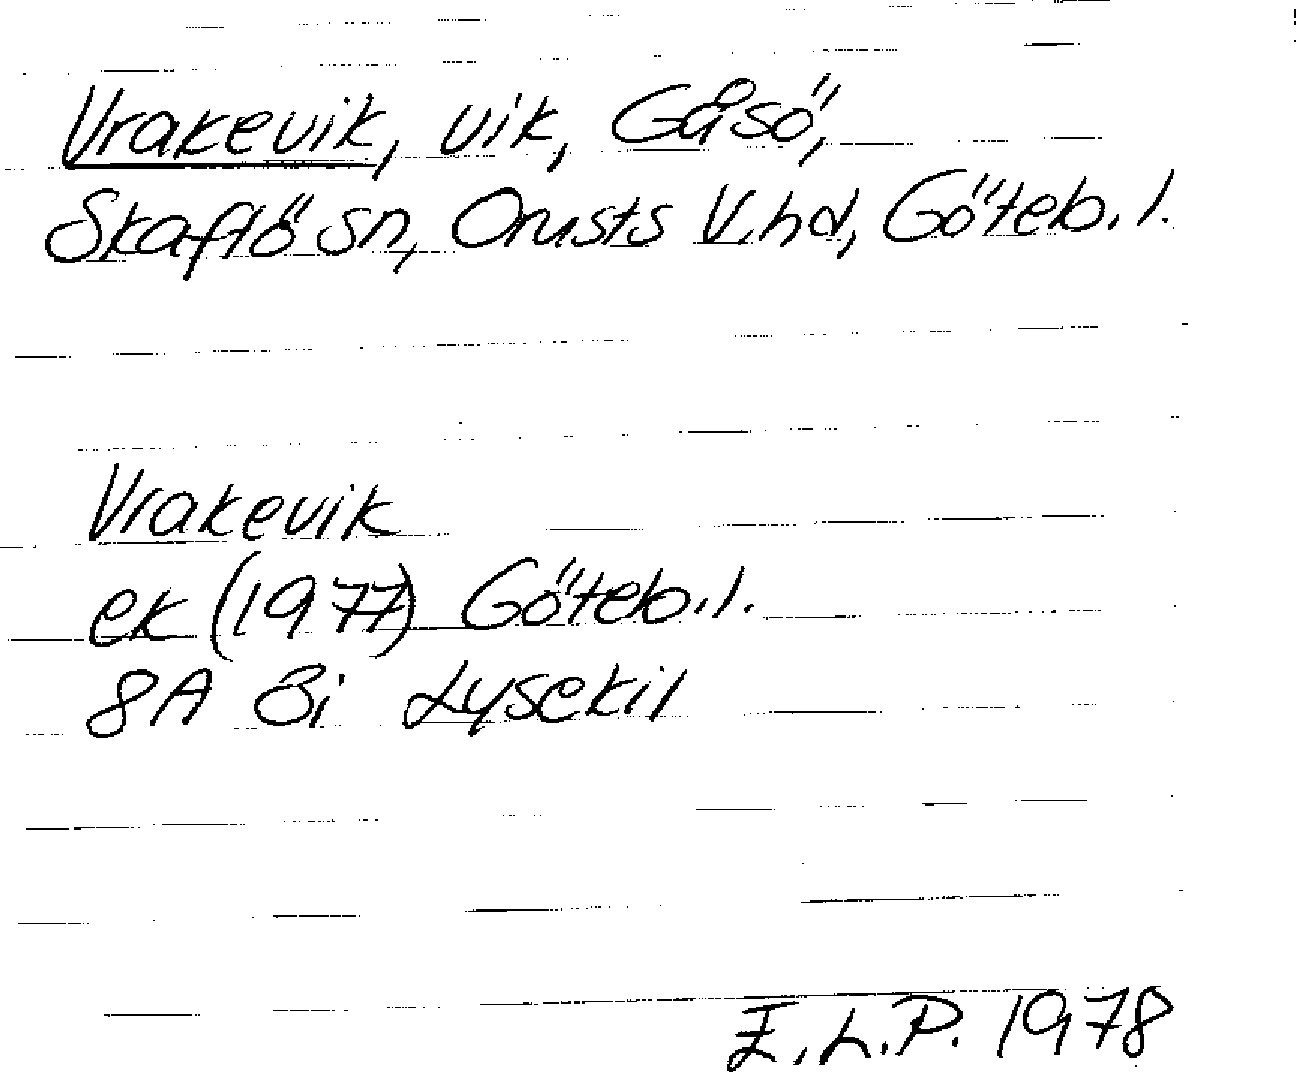 Vrakevik, vik, Gåsö,
Skaftö sn, Orusts V. hd, Göteb. l.
Vrakevik
ek (1977) Göteb. l.
8A 8i Lysekil
E. L. P. 1978